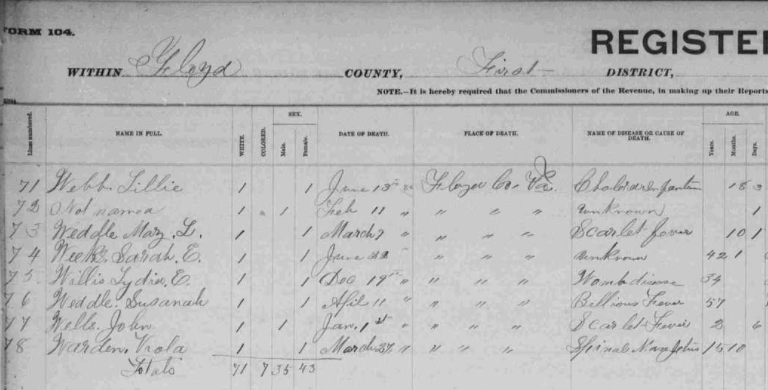 FORM 104.
REGISTER
WITHIN Floyd COUNTY, First DISTRICT,
NOTE.—It is hereby required that the Commissioners of the Revenue, in making up their Reports
Lines numbered. NAME IN FULL. WHITE. COLORED. SEX. Male. Female. DATE OF DEATH. PLACE OF DEATH. NAME OF DISEASE OR CAUSE OF DEATH. AGE. Years. Months. Days.
71 Webb Lillie 1 1 June 13th Floyd Co. Va. Cholera Infantum 18 3
72 Not named 1 " 1 Feb 11 " " " " unknown 1
73 Weddle Mary L. 1 1 March 9 " " " " Scarlet fever 10 1
74 Sarah E. 1 1 June 22 " " " " unknown 42 1
75 Willis Lydia E. 1 1 Dec 19th " " " " Womb disease 34
76 Weddle Susanah 1 1 April 11 " " " " Billious Fever 57
77 Wells John 1 1 Jan. 1st " " " " Scarlet Fever 2 6
78 Warden Viola 1 1 March 27 " " " " Spinal 15 10
Totals 71 7 35 43